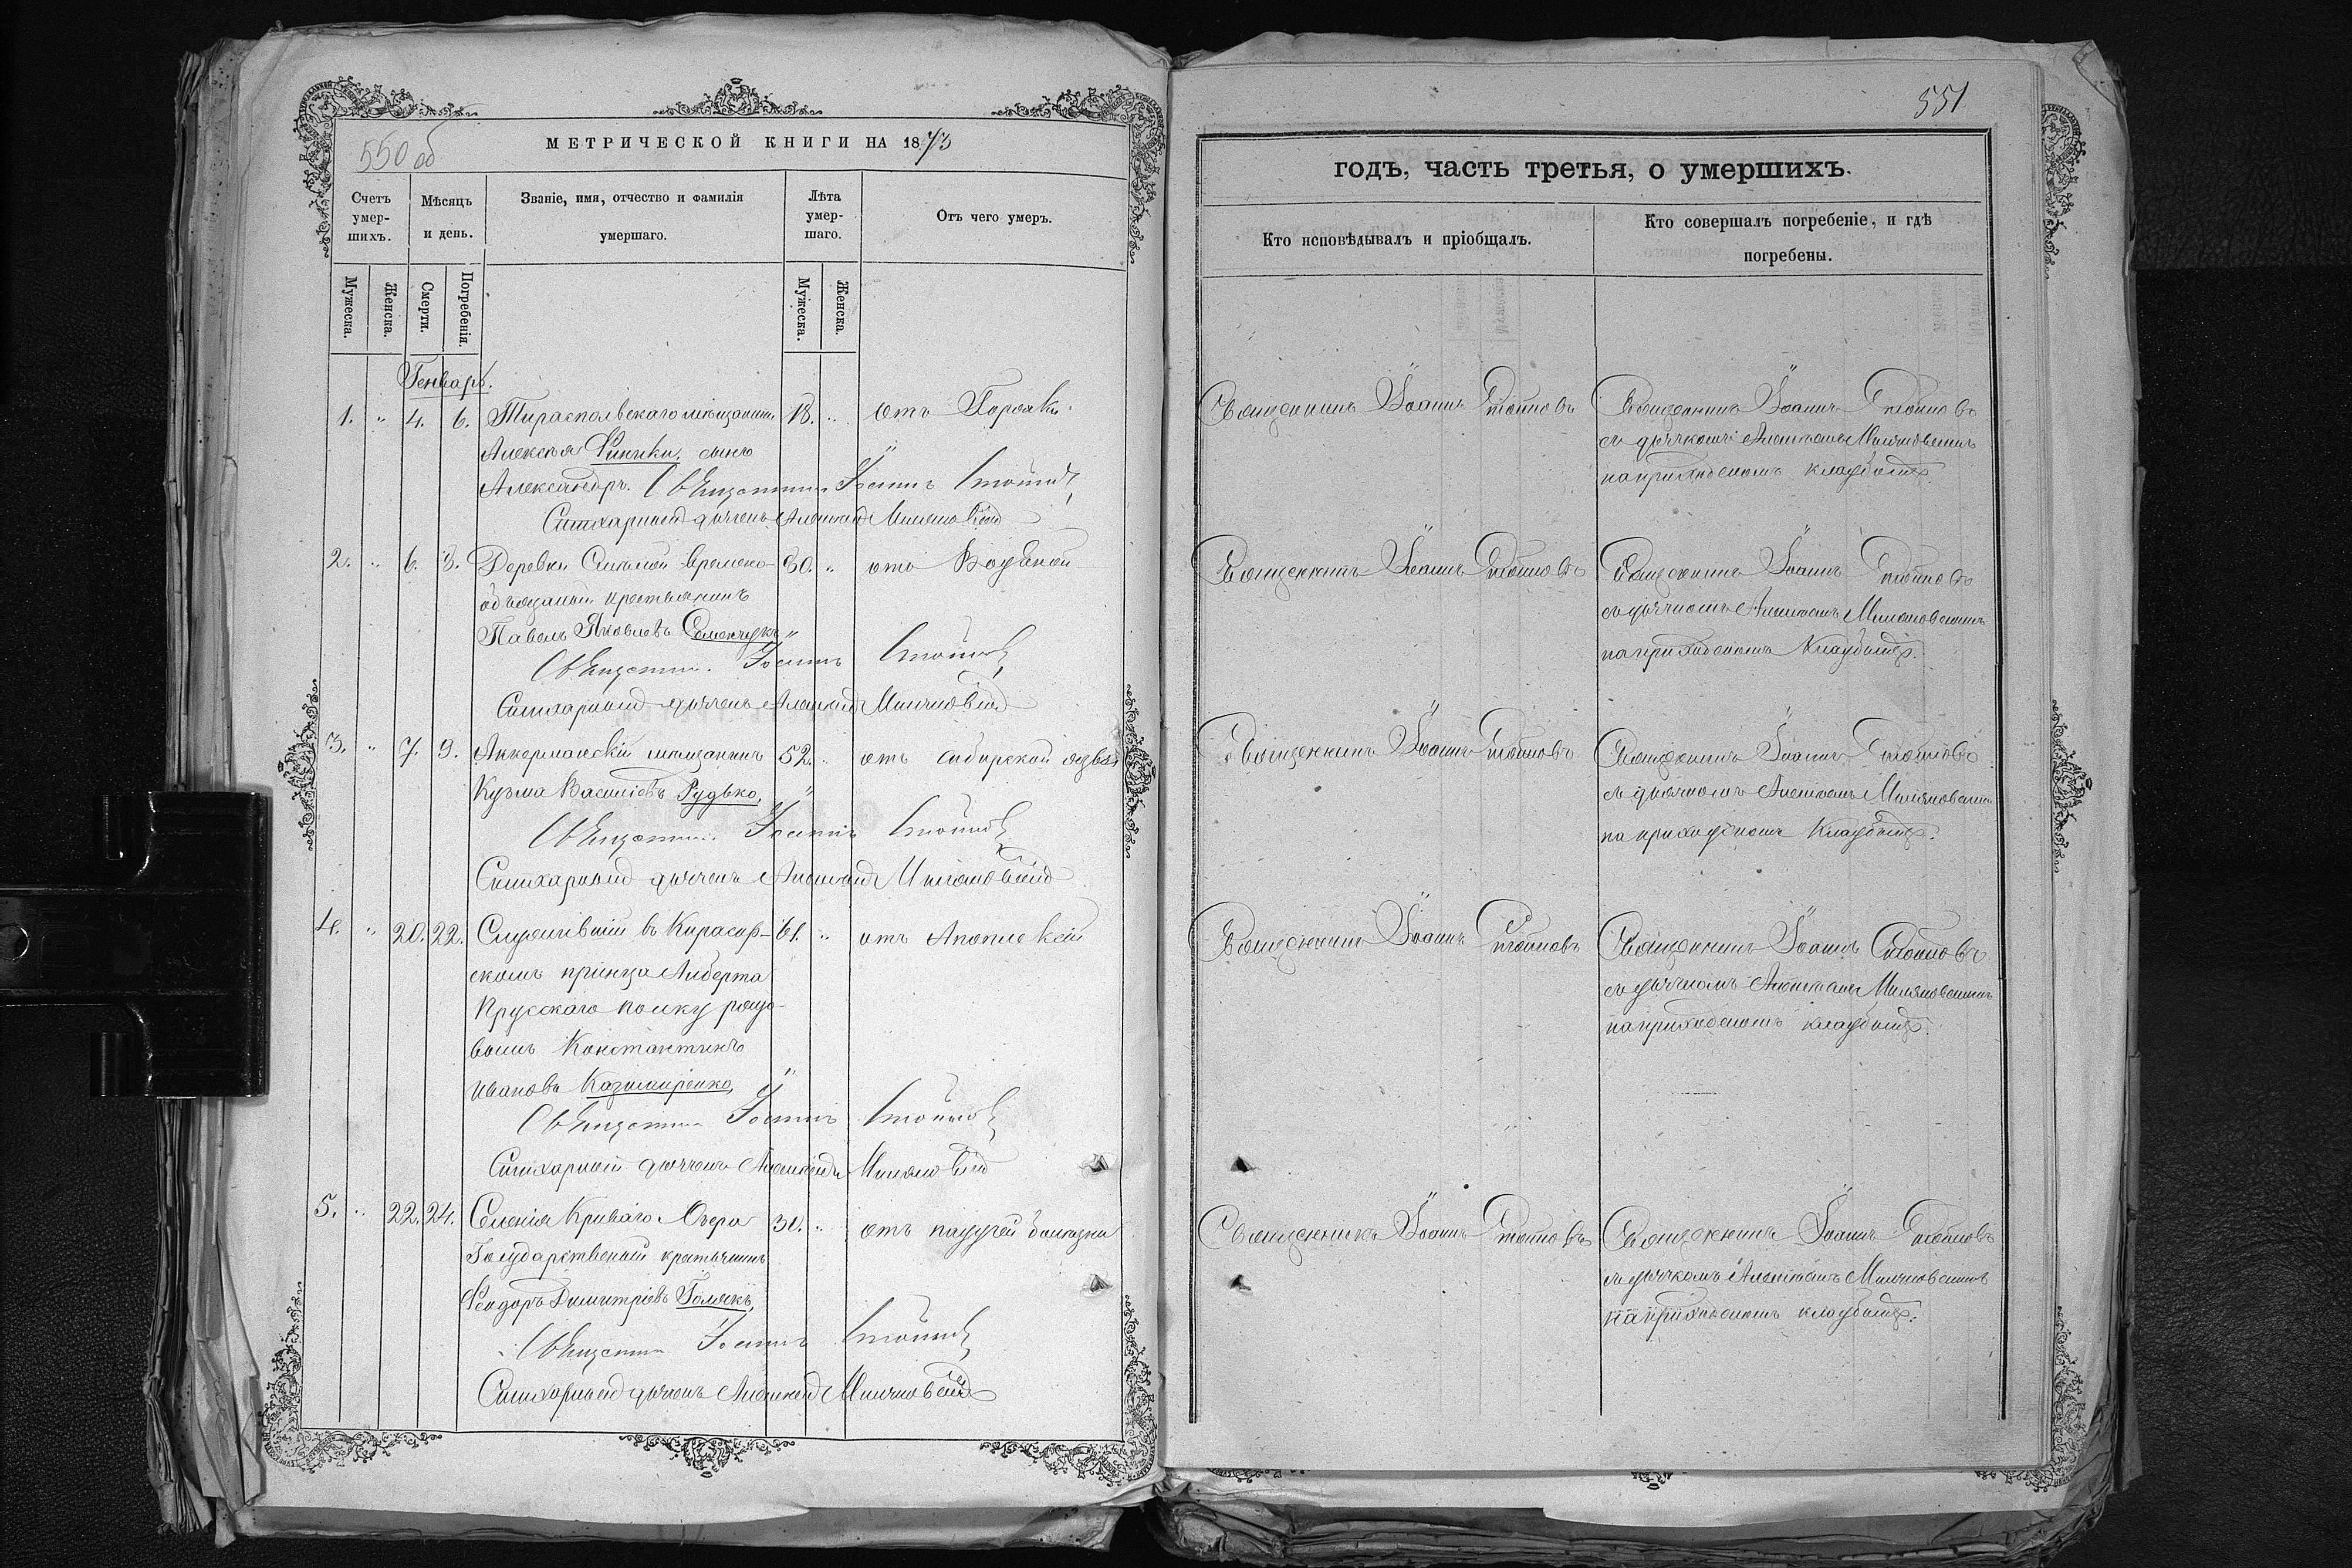 550 об
МЕТРИЧЕСКОЙ КНИГИ НА 1873
Счетъ умер-шихъ.
Мѣсяцъ и день.
Званіе, имя, отчество и фамилія умершаго.
Лѣта умер-шаго.
Отъ чего умеръ.
Мужеска.
Женска.
Смерти.
Погребенія.
Мужеска.
Женска.
Генварь.
1. " 4. 6. Тираспольскаго мѣщанина 18. " отъ Горячки.
Алексѣя сынъ
Александръ. Священникъ Іоаннъ Стойновъ
Стихарный дьячекъ Алексій
2. " 6. 8. Деревни временно- 30. " отъ Водяной
обязаный крестьянинъ
Павелъ Яковлевъ Семенчукъ
Священникъ Іоаннъ Стойновъ
Стихарный дьячекъ Алексій
3. " 7. 9. Аккерманскій мѣщанинъ 52. " отъ сибирской язвы
Кузьма Васильевъ Рудько,
Священникъ Іоаннъ Стойновъ
Стихарный дьячекъ Алексій
4. " 20. 22. Служившій въ Кирасир- 61. " отъ Апоплексіи
скомъ принца Алберта
Прусскаго полку рядо-
вымъ Константинъ
Ивановъ Казимиренко,
Священникъ Іоаннъ Стойновъ
Стихарный дьячекъ Алексій
5. " 22. 24. Селенія Криваго Озера 30. " отъ падучей болѣзни
Государственый крестьянинъ
Ѳеодоръ Димитріевъ Голякъ,
Священникъ Іоаннъ Стойновъ
Стихарный дьячекъ Алексій
551
годъ, часть третья, о умершихъ.
Кто исповѣдывалъ и пріобщалъ.
Кто совершалъ погребеніе, и гдѣ погребены.
Священникъ Іоаннъ Стойновъ
Священникъ Іоаннъ Стойновъ
съ дьячкомъ Алексіемъ
на приходскомъ кладбищѣ.
Священникъ Іоаннъ Стойновъ
Священникъ Іоаннъ Стойновъ
съ дьячкомъ Алексіемъ
на приходскомъ Кладбищѣ.
Священникъ Іоаннъ Стойновъ
Священникъ Іоаннъ Стойновъ
съ дьячкомъ Алексіемъ
на приходскомъ Кладбищѣ.
Священникъ Іоаннъ Стойновъ
Священникъ Іоаннъ Стойновъ
съ дьячкомъ Алексіемъ
на приходскомъ кладбищѣ.
Священникъ Іоаннъ Стойновъ
Священникъ Іоаннъ Стойновъ
съ дьячкомъ Алексіемъ
на приходскомъ кладбищѣ.